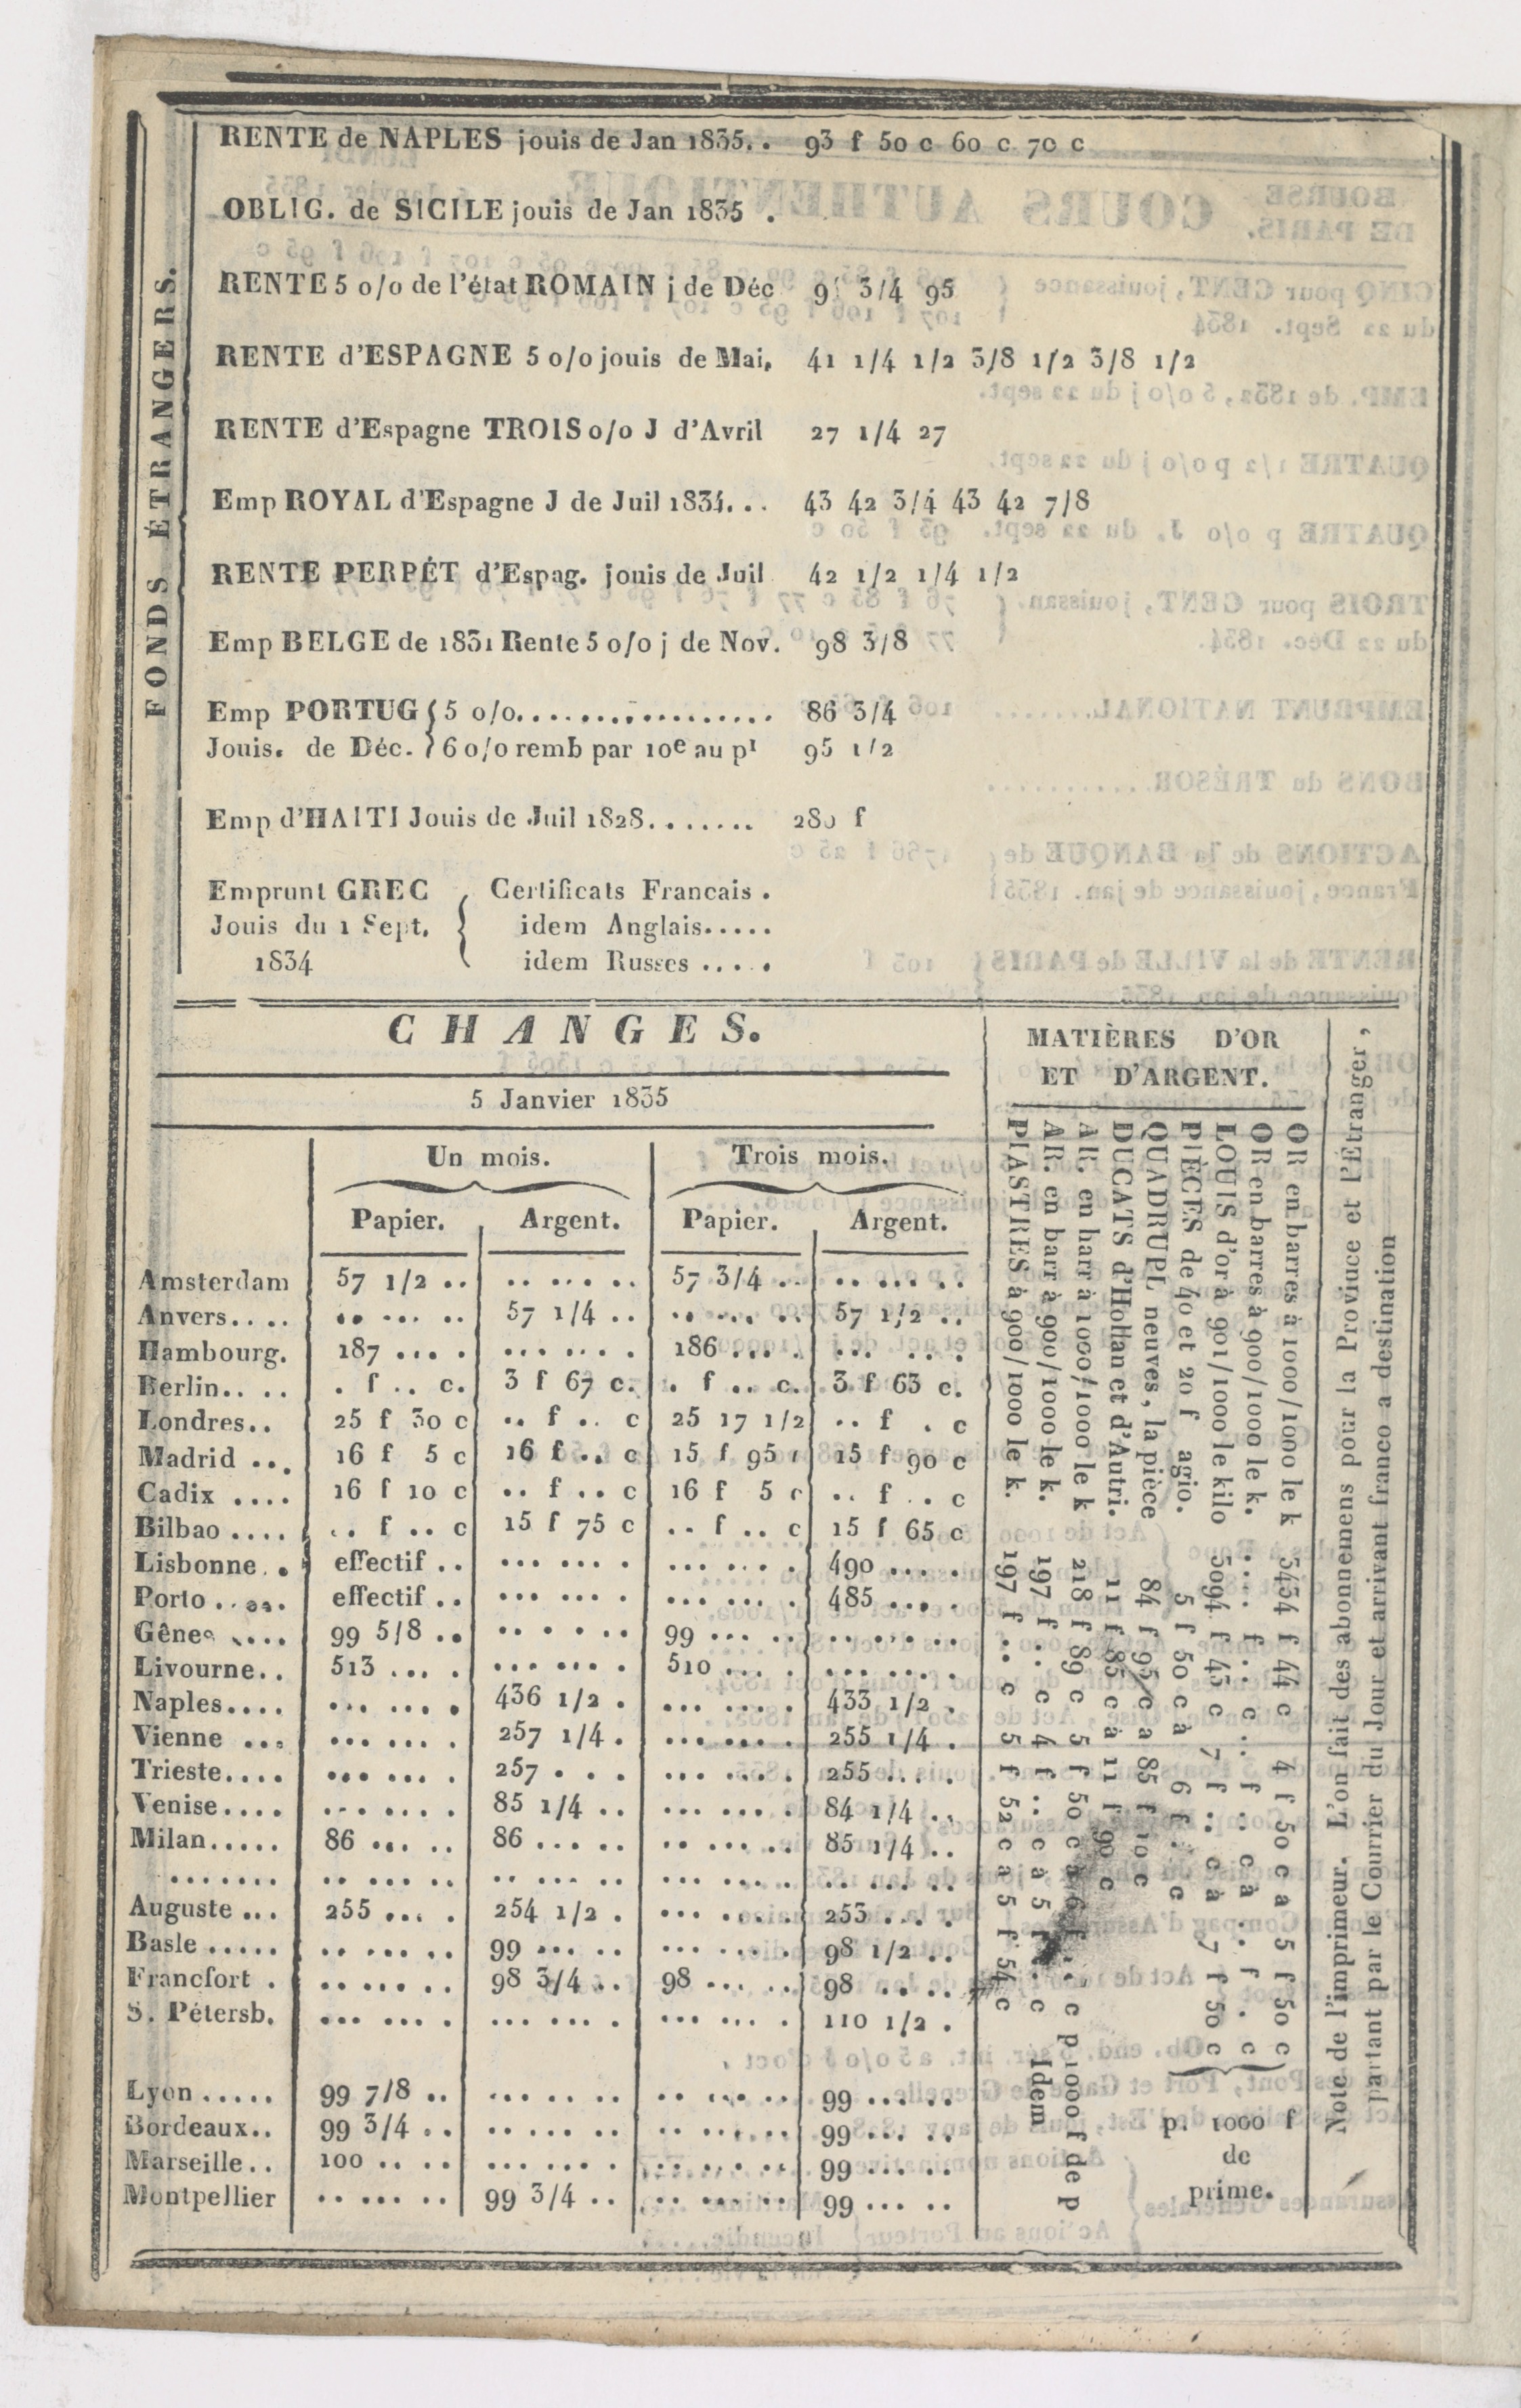 FONDS ÉTRANGERS.
RENTE de NAPLES jouis de Jan 1835.. 93 f 50 c 60 c 70 c
OBLIG. de SICILE jouis de Jan 1835 .
RENTE 5 o/o de l'état ROMAIN j de Déc 3/4 95
RENTE d'ESPAGNE 5 o/o jouis de Mai, 41 1/4 1/2 3/8 1/2 3/8 1/2
RENTE d'Espagne TROIS o/o J d'Avril 27 1/4 27
Emp ROYAL d'Espagne J de Juil 1834... 43 42 3/4 43 42 7/8
RENTE PERPÉT d'Espag. jouis de Juil 42 1/2 1/4 1/2
Emp BELGE de 1831 Rente 5 o/o j de Nov. 98 3/8
Emp PORTUG { 5 o/o.................. 86 3/4
Jouis. de Déc. } 6 o/o remb par 10e au pr 95 1/2
Emp d'HAITI Jouis de Juil 1828....... 280 f
Emprunt GREC { Certificats Francais .
Jouis du 1 Sept. idem Anglais.....
1834 idem Russes .....
CHANGES.
5 Janvier 1835
Un mois. Trois mois.
Papier. Argent. Papier. Argent.
Amsterdam 57 1/2 .. .. ... .. 57 3/4 .. .. ... ..
Anvers.... .. ... .. 57 1/4 .. .. ... .. 57 1/2 ..
Hambourg. 187 ... . ... ... . 186 ... . ... ... .
Berlin.. .. . f .. c. 3 f 67 c. . f .. c. 3 f 63 c.
Londres.. 25 f 30 c .. f .. c 25 17 1/2 .. f . c
Madrid ... 16 f 5 c 16 f .. c 15 f 95 15 f 90 c
Cadix .... 16 f 10 c .. f .. c 16 f 5 c .. f .. c
Bilbao .... .. f .. c 15 f 75 c .. f .. c 15 f 65 c
Lisbonne . . effectif .. ... ... . ... ... . 490 ... .
Porto ..... effectif .. ... ... . ... ... . 485 ... .
Gênes .... 99 5/8 .. .. . . .. 99 ... .. .. ... ..
Livourne.. 513 ... . ... ... . 510 ... . ... ... .
Naples.... ... ... . 436 1/2 . ... ... . 433 1/2 .
Vienne ... ... ... . 257 1/4 . ... ... . 255 1/4 .
Trieste.... ... ... . 257 . . . ... ... . 255 ... .
Venise.... ... ... . 85 1/4 .. ... ... . 84 1/4 ..
Milan..... 86 ... .. 86 ... .. .. ... .. 85 1/4 ..
....... .. ... .. .. ... .. ... ... . .. ... ..
Auguste ... 255 ... . 254 1/2 . ... ... . 253 ... .
Basle ..... .. ... .. 99 ... .. ... ... . 98 1/2 ..
Francfort . .. ... .. 98 3/4 .. 98 ... .. 98 ... ..
S. Pétersb. ... ... . ... ... . ... ... . 110 1/2 .
Lyon ..... 99 7/8 .. ... .. .. .. ... .. 99 ... ..
Bordeaux.. 99 3/4 .. .. ... .. .. ... .. 99 ... ..
Marseille.. 100 .. .. ... ... . .. ... .. 99 ... ..
Montpellier .. ... .. 99 3/4 .. .. ... .. 99 ... ..
MATIÈRES D'OR
ET D'ARGENT.
OR en barres à 1000/1000 le k 3434 f 44 c 4 f 50 c a 5 f 50 c
OR en barres à 900/1000 le k. .... f .. c .. f .. c à .. f . c
LOUIS d'or à 901/1000 le kilo 3094 f 43 c 7 f .. c à 7 f 50 c
p. 1000 f
de
prime.
PIÈCES de 40 et 20 f agio. 5 f 50 c à 6 f .. c
QUADRUPL neuves, la pièce 84 f 95 c a 85 f 10 c
DUCATS d'Hollan et d'Autri. 11 f 85 c à 11 f 90 c
AR. en barr à 1000/1000 le k 218 f 89 c 5 f 50 c a 6 f .. c p 1000 f de p
AR. en barr à 900/1000 le k. 197 f .. c 4 f .. c à 5 f .. c Idem
PIASTRES à 900/1000 le k. 197 f .. c 5 f 52 c a 5 f 54 c
Note de l'imprimeur. L'on fait des abonnemens pour la Proviuce et l'Étranger,
partant par le Courrier du Jour et arrivant franco a destination